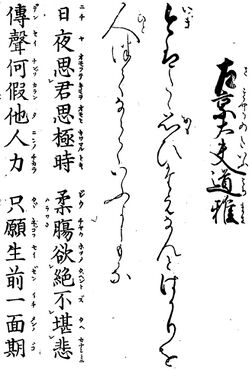 左京大夫道雅
今はたゝ思ひたえなんとはかりを
人つてならていふよしもかな
日夜思君思極時 柔腸欲絶不堪悲
傳聲何假他人力 只願生前一面期